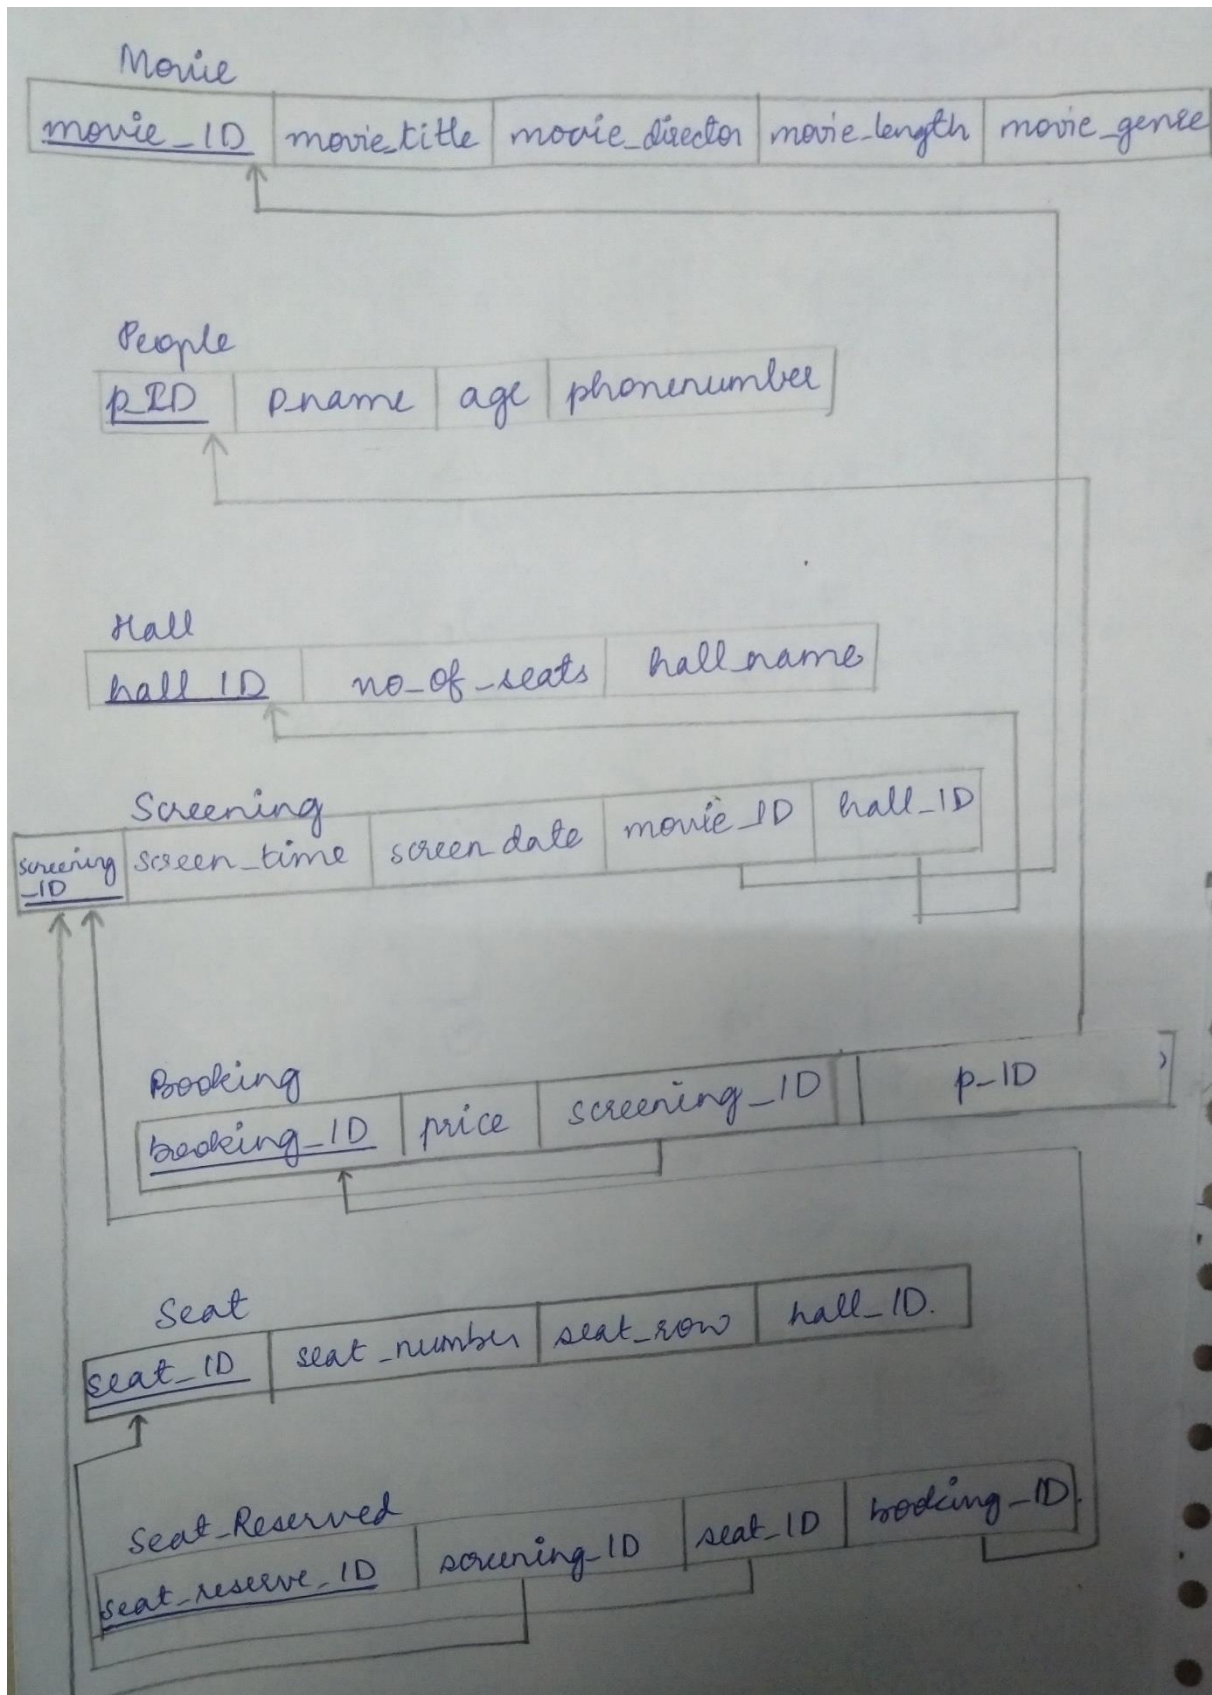 Movie
movie_ID movie_title movie_director movie_length movie_genre
People
p_ID p_name age phonenumber
Hall
hall_ID no_of_seats hall_name
Screening
screening_ID screen_time screen_date movie_ID hall_ID
Booking
booking_ID price screening_ID p_ID
Seat
seat_ID seat_number seat_row hall_ID.
Seat_Reserved
seat_reserve_ID screening_ID seat_ID booking_ID.